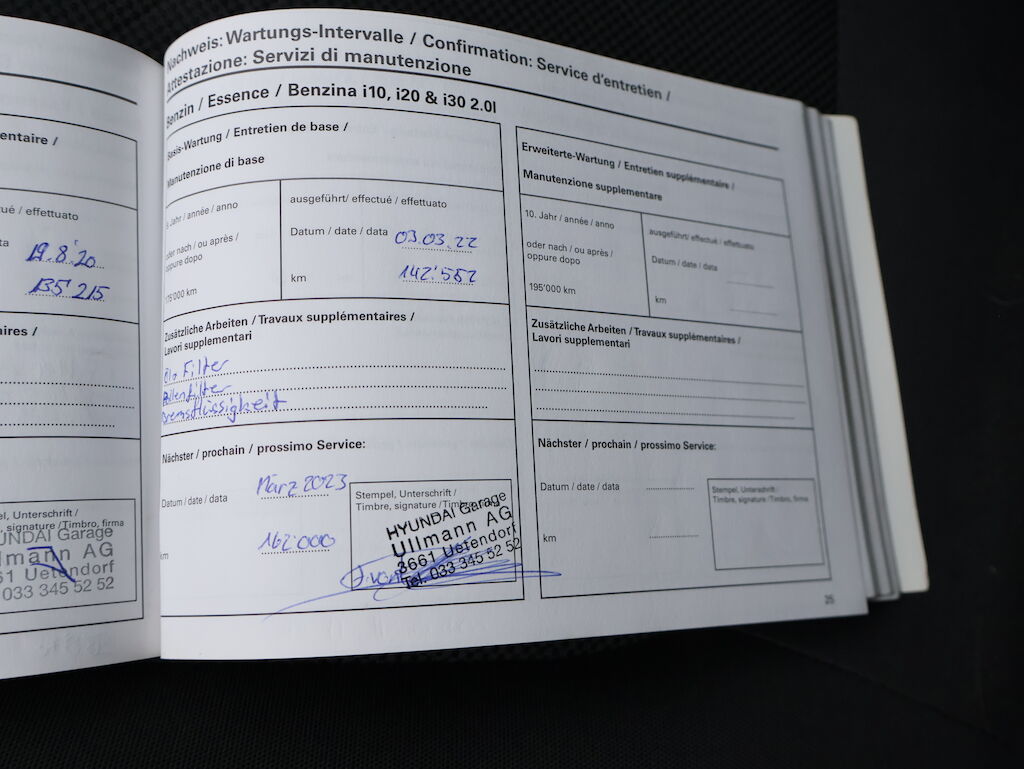 entaire /
tué / effettuato
ta 19.8.'20
135'215
aires /
el, Unterschrift /
, signature /Timbro, firma
YUNDAI Garage
lmann AG
61 Uetendorf
033 345 52 52
Nachweis: Wartungs-Intervalle / Confirmation: Service d'entretien /
Attestazione: Servizi di manutenzione
Benzin / Essence / Benzina i10, i20 & i30 2.0l
Basis-Wartung / Entretien de base /
Manutenzione di base
Jahr / année / anno
oder nach / ou après /
oppure dopo
175'000 km
ausgeführt/ effectué / effettuato
Datum / date / data 03.03.22
km 142'552
Zusätzliche Arbeiten / Travaux supplémentaires /
Lavori supplementari
Filter
Pollenfilter
Bremsflüssigkeit
Nächster / prochain / prossimo Service:
Datum / date / data März 2023
km 162'000
Stempel, Unterschrift /
Timbre, signature /Timbro, firma
HYUNDAI Garage
Ullmann AG
3661 Uetendorf
Tel. 033 345 52 52
Erweiterte-Wartung / Entretien supplémentaire /
Manutenzione supplementare
10. Jahr / année / anno
oder nach / ou après /
oppure dopo
195'000 km
ausgeführt/ effectué / effettuato
Datum / date / data
km
Zusätzliche Arbeiten / Travaux supplémentaires /
Lavori supplementari
Nächster / prochain / prossimo Service:
Datum / date / data
km
Stempel, Unterschrift /
Timbre, signature /Timbro, firma
25